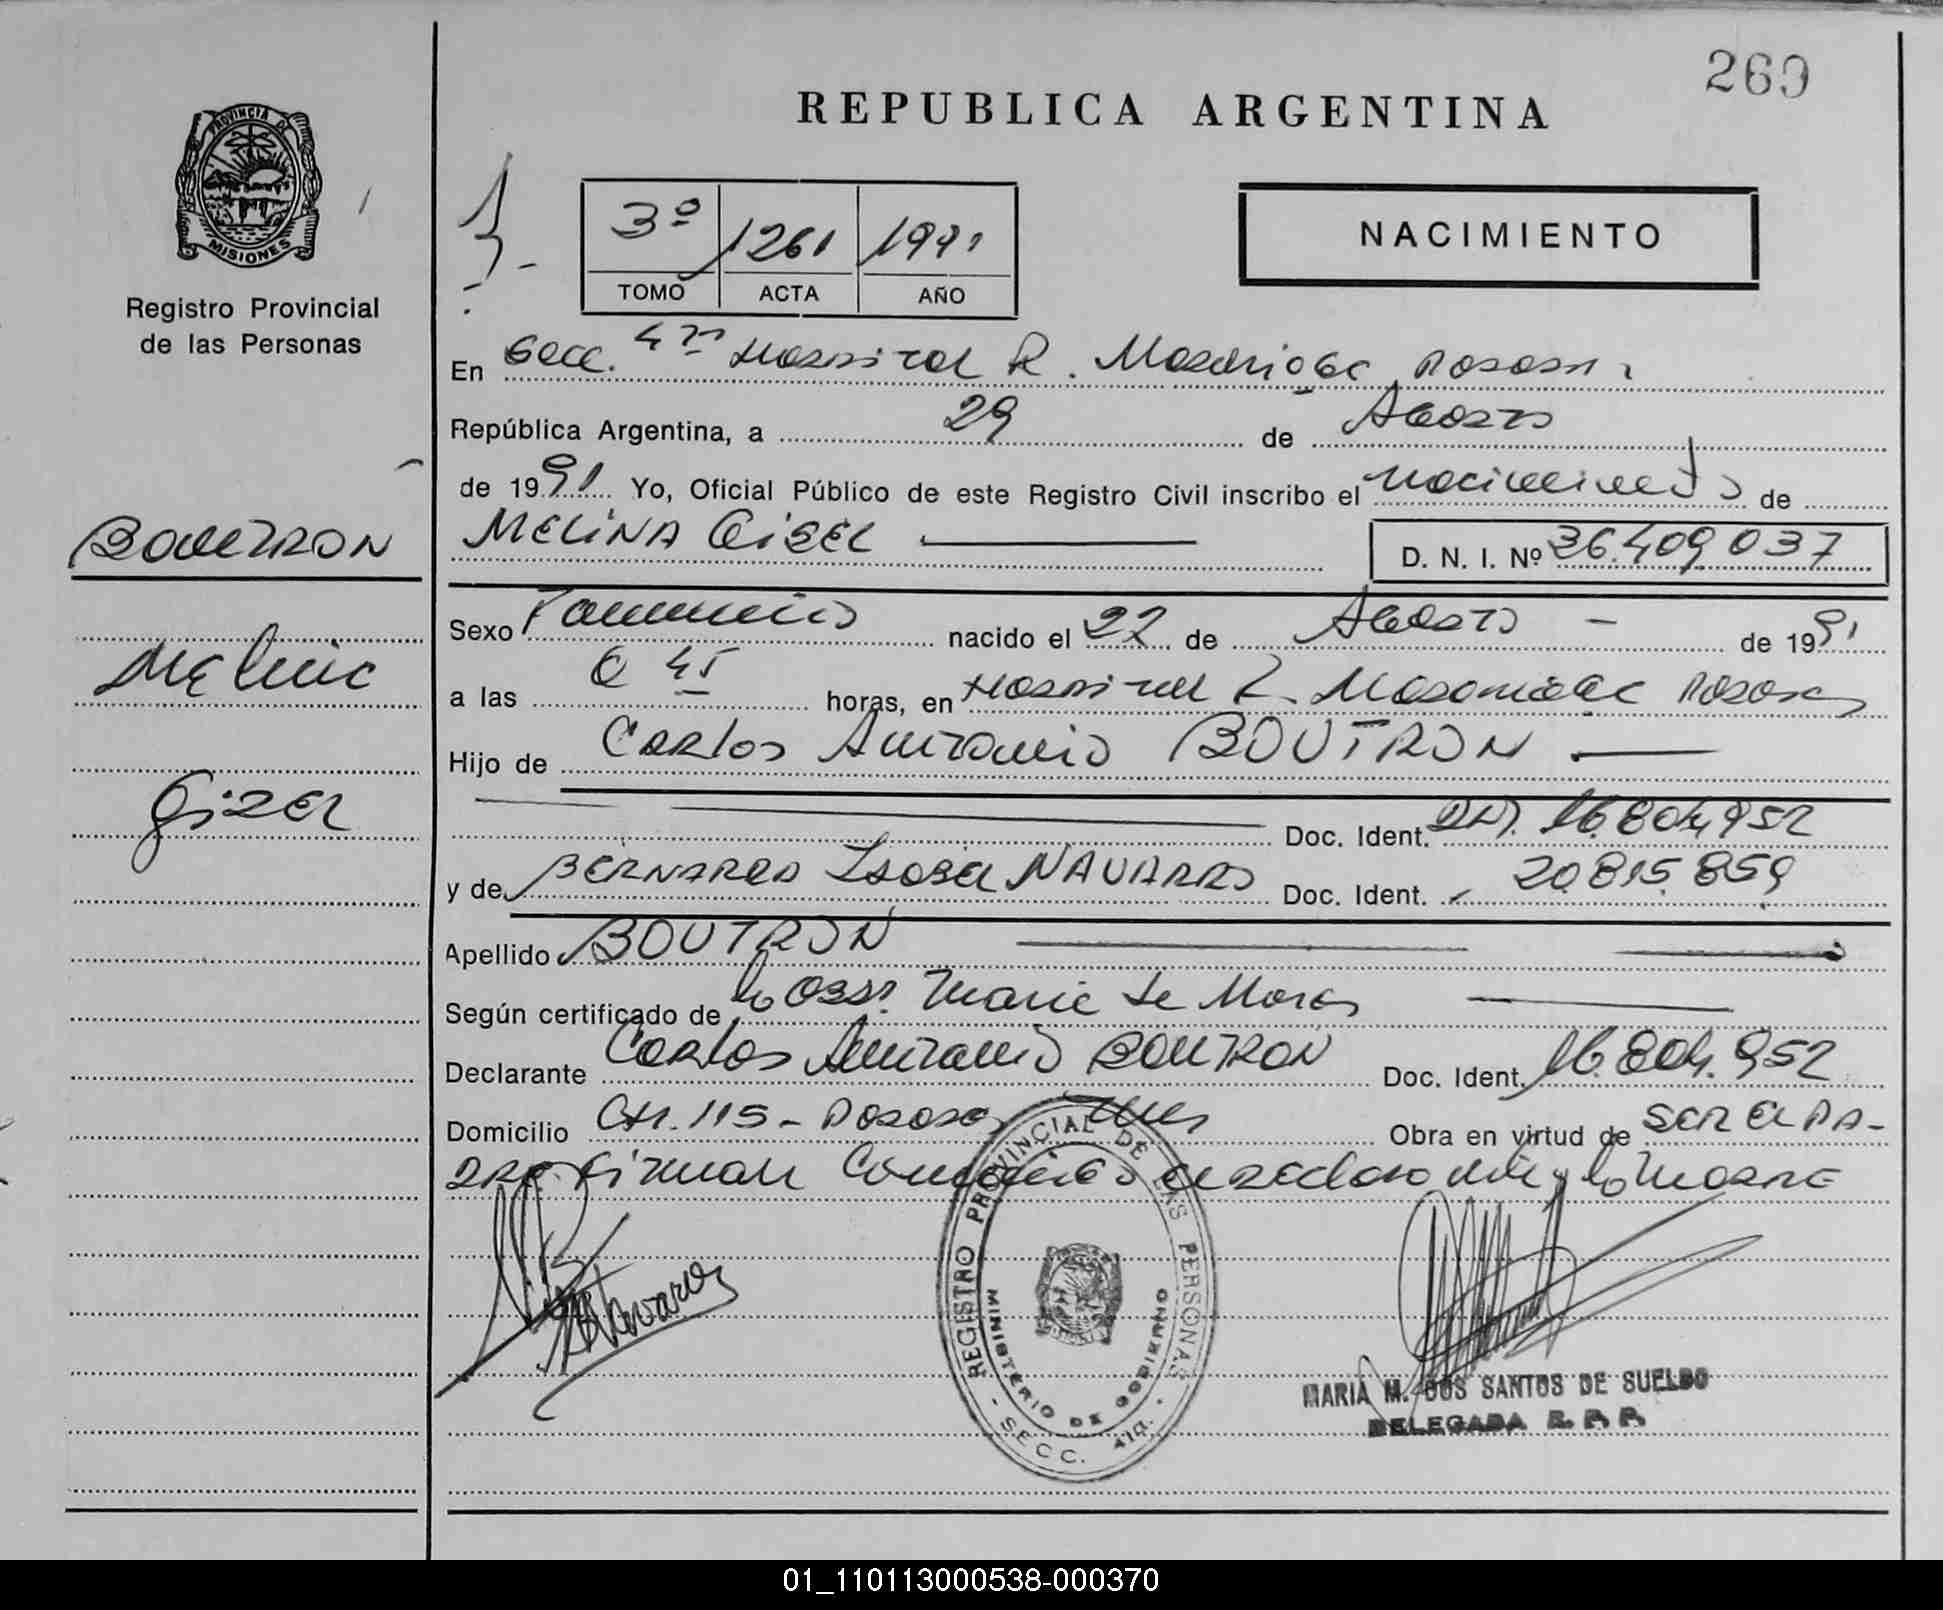 269
REPUBLICA ARGENTINA
PROVINCIA DE
MISIONES
Registro Provincial
de las Personas
3º 1261 1991
TOMO ACTA AÑO
NACIMIENTO
En Secc. 4ta Hospital R. Madariaga Posadas
República Argentina, a 29 de Agosto
de 1991 Yo, Oficial Público de este Registro Civil inscribo el nacimiento de
MELINA GISEL D. N. I. Nº 36.409.037
BOUTRON
Melina
Gisel
Sexo Femenino nacido el 22 de Agosto de 1991
a las 0 45 horas, en Hospital R. Madariaga Posadas
Hijo de Carlos Antonio BOUTRON
Doc. Ident. DNI. 16.804.952
y de BERNARDA Isabel NAVARRO Doc. Ident. 20.815.859
Apellido BOUTRON
Según certificado de la Obst. Maria de
Declarante Carlos Antonio BOUTRON Doc. Ident. 16.804.952
Domicilio CH. 115 - Posadas Mnes Obra en virtud de SER EL PA-
DRE. Firman el declarante y la madre
REGISTRO PROVINCIAL DE LAS PERSONAS
MINISTERIO DE GOBIERNO
- SECC. 4ta. -
MARIA M. DOS SANTOS DE SUELDO
DELEGADA R. P. P.
01_110113000538-000370